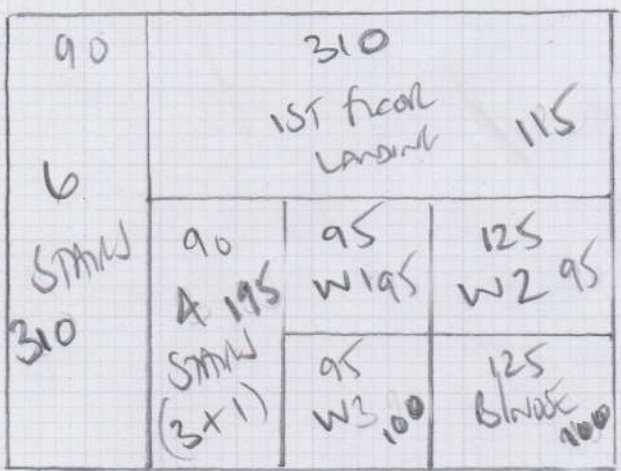 90
6
STAIRS
310
310
1ST FLOOR
LANDING
115
90
4 195
STAIRS
(3+1)
95
W1 95
125
W2 95
95
W3 100
125
B/NOSE
100